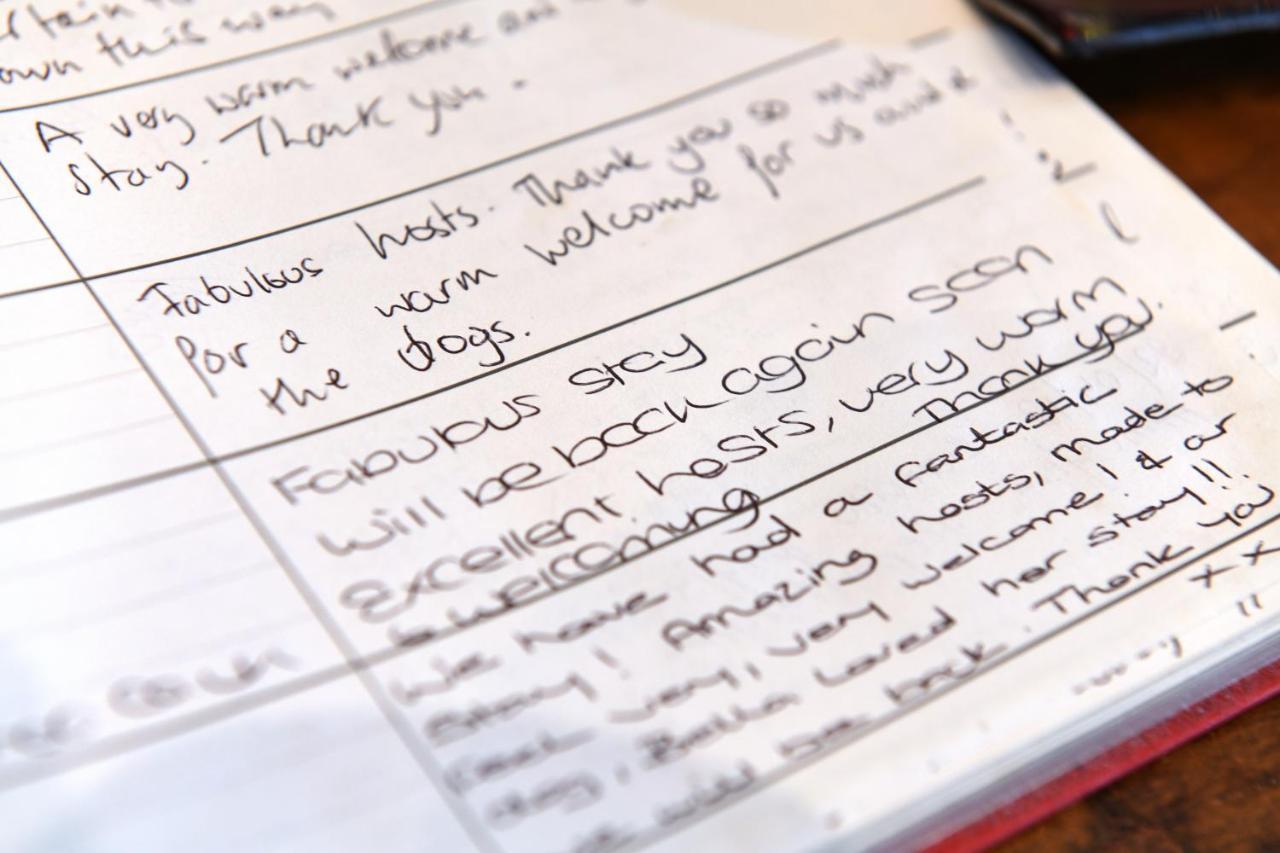 own this way
A very warm welcome and
stay. Thank you.
Fabulous hosts. Thank you so much
for a warm welcome for us and
the dogs.
Fabulous stay
will be back again soon
Excellent hosts, very warm
& welcoming Thank you.
We have had a fantastic
stay! Amazing hosts, made to
feel very, very welcome! & our
dog, Bella loved her stay!!
we will be back. Thank you
xx